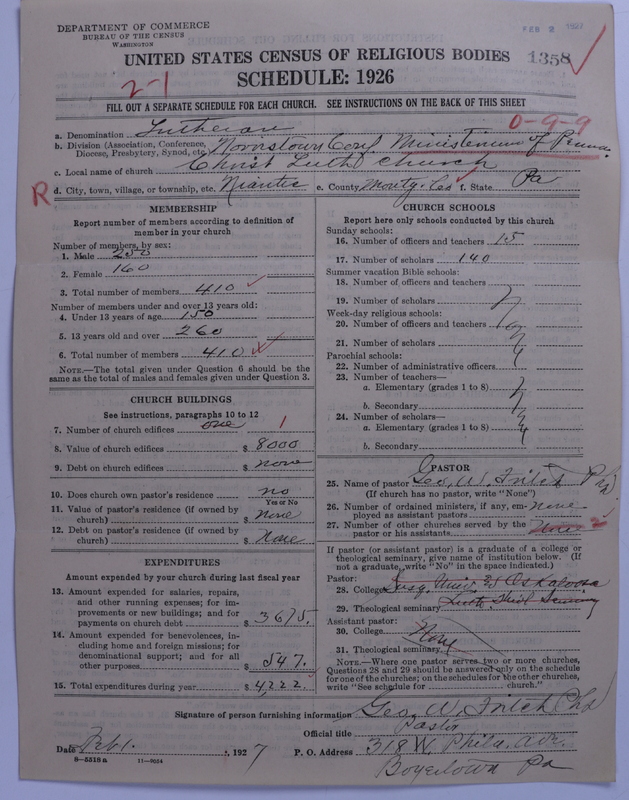 DEPARTMENT OF COMMERCE
BUREAU OF THE CENSUS
WASHINGTON
FEB 2 1927
UNITED STATES CENSUS OF RELIGIOUS BODIES
1358
SCHEDULE: 1926
2-1
FILL OUT A SEPARATE SCHEDULE FOR EACH CHURCH. SEE INSTRUCTIONS ON THE BACK OF THIS SHEET
0-9-9
a. Denomination Lutheran
b. Division (Association, Conference, Diocese, Presbytery, Synod, etc.) Norristown Conf Ministerium of Penna.
c. Local name of church Christ Luth church
R
d. City, town, village, or township, etc. Niantic e. County Montg. Co f. State Pa
MEMBERSHIP
Report number of members according to definition of
member in your church
Number of members, by sex:
1. Male 250
2. Female 160
3. Total number of members 410
Number of members under and over 13 years old:
4. Under 13 years of age 150
5. 13 years old and over 260
6. Total number of members 410
NOTE.—The total given under Question 6 should be the
same as the total of males and females given under Question 3.
CHURCH BUILDINGS
See instructions, paragraphs 10 to 12
7. Number of church edifices one 1
8. Value of church edifices $ 8000
9. Debt on church edifices $ none
10. Does church own pastor's residence no
Yes or No
11. Value of pastor's residence (if owned by
church) $ None
12. Debt on pastor's residence (if owned by
church) $ None
EXPENDITURES
Amount expended by your church during last fiscal year
13. Amount expended for salaries, repairs,
and other running expenses; for im-
provements or new buildings; and for
payments on church debt $ 3675.
14. Amount expended for benevolences, in-
cluding home and foreign missions; for
denominational support; and for all
other purposes $ 547.
15. Total expenditures during year $ 4222.
CHURCH SCHOOLS
Report here only schools conducted by this church
Sunday schools:
16. Number of officers and teachers 15
17. Number of scholars 140
Summer vacation Bible schools:
18. Number of officers and teachers
19. Number of scholars
Week-day religious schools:
20. Number of officers and teachers
21. Number of scholars
Parochial schools:
22. Number of administrative officers
23. Number of teachers—
a. Elementary (grades 1 to 8)
b. Secondary
24. Number of scholars—
a. Elementary (grades 1 to 8)
b. Secondary
PASTOR
25. Name of pastor Geo. W. Fritch PhD
(If church has no pastor, write "None")
26. Number of ordained ministers, if any, em-
ployed as assistant pastors none
27. Number of other churches served by the
pastor or his assistants 2
If pastor (or assistant pastor) is a graduate of a college or
theological seminary, give name of institution below. (If
not a graduate, write "No" in the space indicated.)
Pastor:
28. College Univ Oskaloosa
29. Theological seminary Luth Theol Seminary
Assistant pastor:
30. College None
31. Theological seminary
NOTE.—Where one pastor serves two or more churches,
Questions 28 and 29 should be answered only on the schedule
for one of the churches; on the schedules for the other churches,
write "See schedule for church."
Signature of person furnishing information Geo. W. Fritch PhD
Official title Pastor
Date Feb 1., 1927 P. O. Address 318 W. Phila. ave.
8-5518a 11-9054
Boyertown Pa